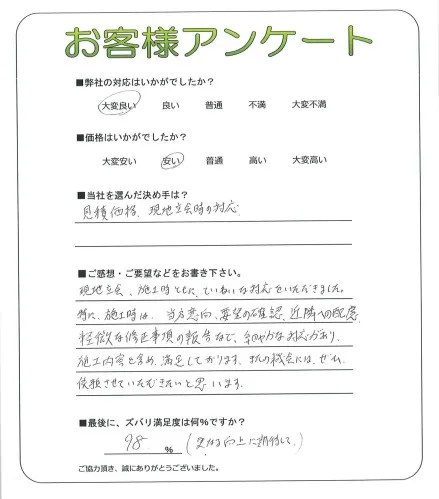 お客様アンケート
■弊社の対応はいかがでしたか?
大変良い 良い 普通 不満 大変不満
■価格はいかがでしたか?
大変安い 安い 普通 高い 大変高い
■当社を選んだ決め手は?
見積価格、現地立会時の対応
■ご感想・ご要望などをお書き下さい。
現地立会、施工時ともに、ていねいな対応をいただきました。
特に、施工時は、当方意向、要望の確認、近隣への配慮
軽微な修正事項の報告など、細やかな対応があり、
施工内容を含め、満足しております。またの機会には、ぜひ
依頼させていただきたいと思います。
■最後に、ズバリ満足度は何%ですか?
98 % (更なる向上に期待して。)
ご協力頂き、誠にありがとうございました。